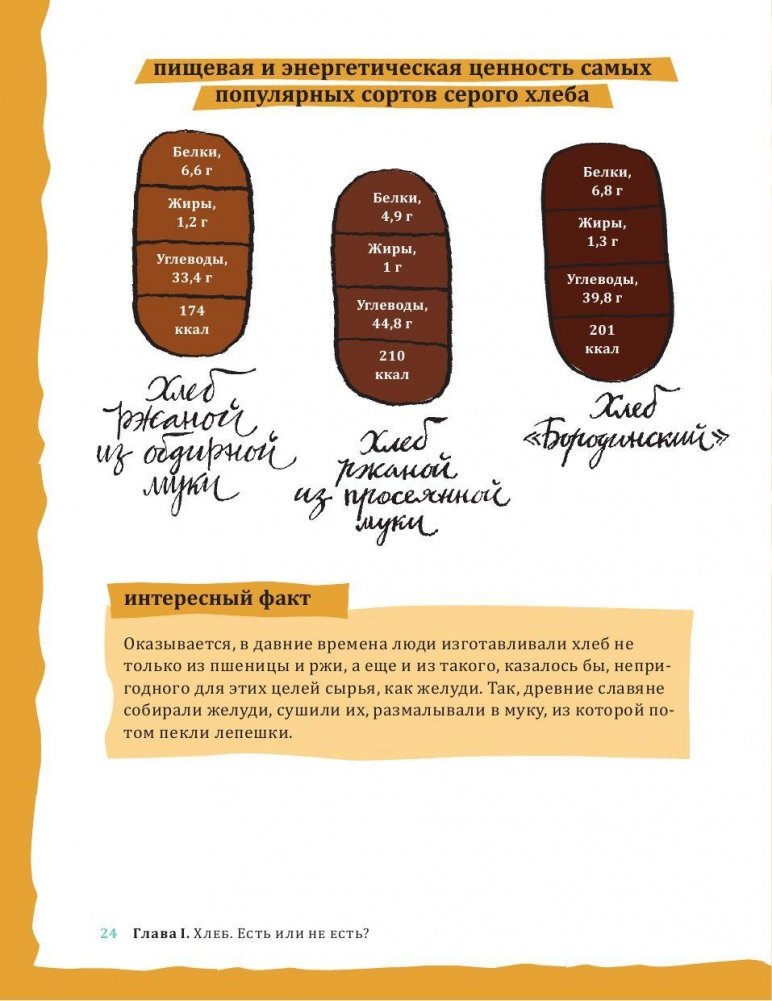 пищевая и энергетическая ценность самых
популярных сортов серого хлеба
Белки,
6,6 г
Жиры,
1,2 г
Углеводы,
33,4 г
174
ккал
Хлеб
ржаной
из обдирной
муки
Белки,
4,9 г
Жиры,
1 г
Углеводы,
44,8 г
210
ккал
Хлеб
ржаной
из просеянной
муки
Белки,
6,8 г
Жиры,
1,3 г
Углеводы,
39,8 г
201
ккал
Хлеб
«Бородинский»
интересный факт
Оказывается, в давние времена люди изготавливали хлеб не
только из пшеницы и ржи, а еще и из такого, казалось бы, непри-
годного для этих целей сырья, как желуди. Так, древние славяне
собирали желуди, сушили их, размалывали в муку, из которой по-
том пекли лепешки.
24 Глава I. Хлеб. Есть или не есть?